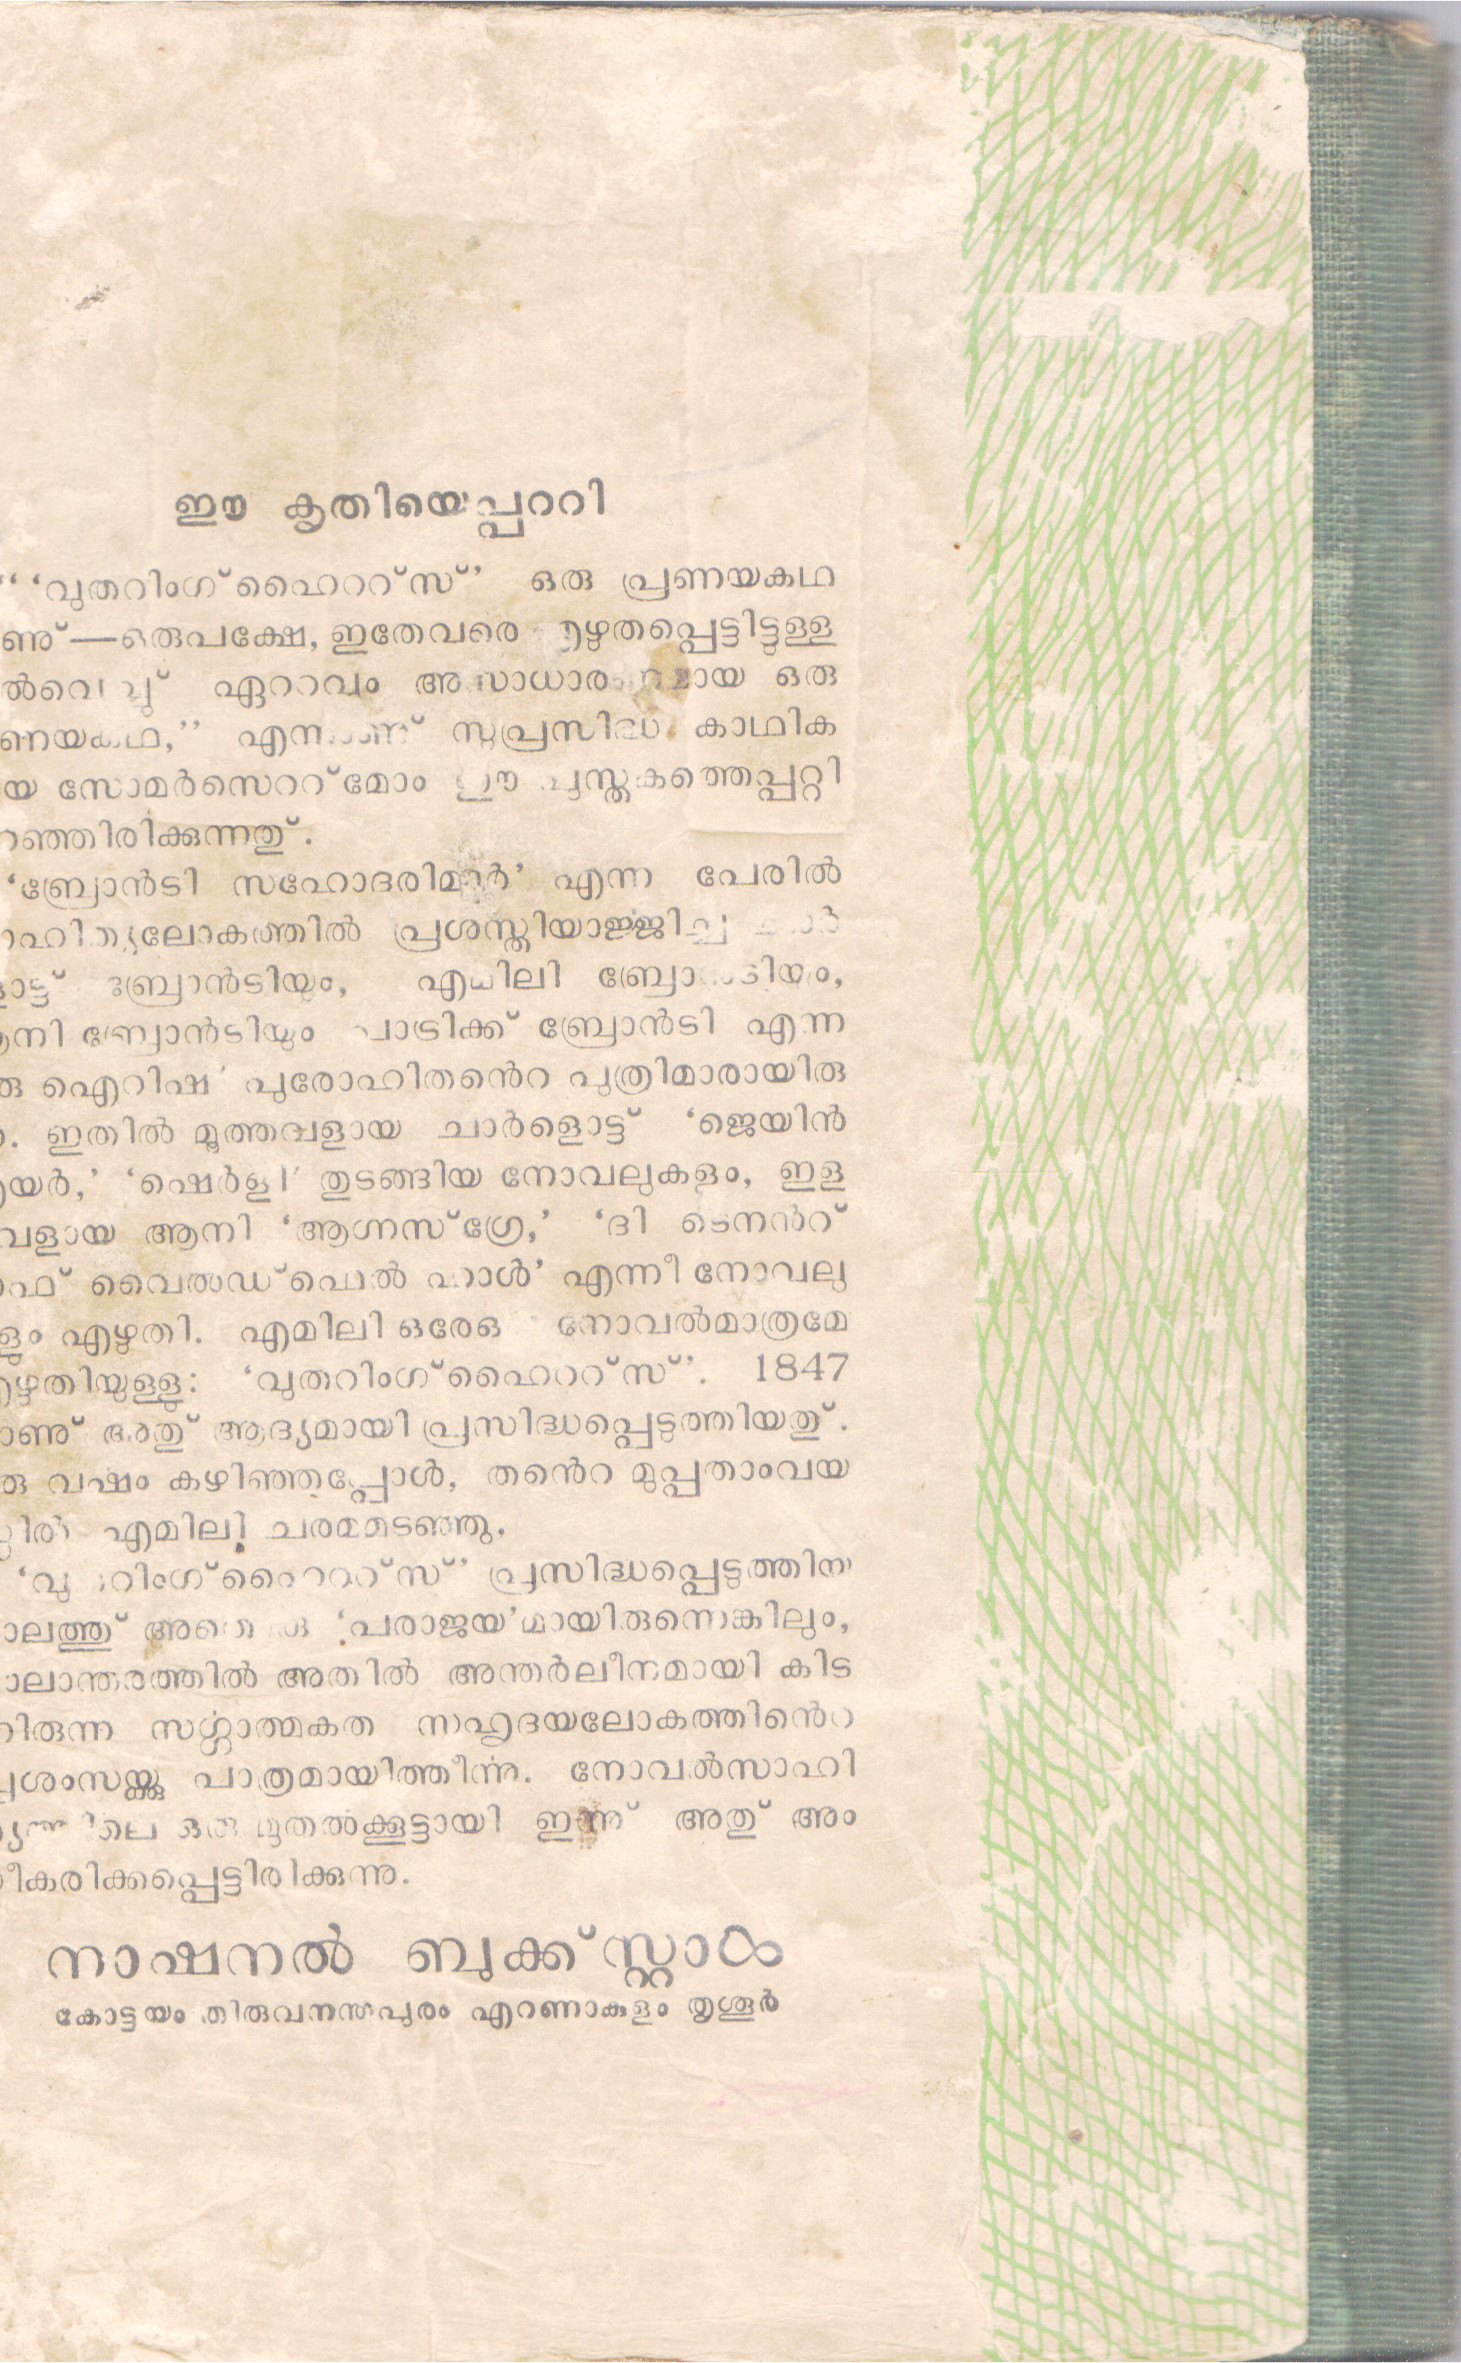 ഈ കൃതിയെപ്പററി
“ ‘വുതറിംഗ്ഹൈററ്സ്’ ഒരു പ്രണയകഥ
ണു്—ഒരുപക്ഷേ, ഇതേവരെ എഴുതപ്പെട്ടിട്ടുള്ള
ഏററവും അസാധാരണമായ ഒരു
ണയകഥ,” എന്നാണ് സുപ്രസിദ്ധ കാഥിക
യ സോമർസെററ്മോം ഈ പുസ്തകത്തെപ്പറ്റി
റഞ്ഞിരിക്കുന്നതു്.
‘ബ്രോൻടി സഹോദരിമാർ’ എന്ന പേരിൽ
ാഹിത്യലോകത്തിൽ പ്രശസ്തിയാജ്ജിച്ച ചാർ
ളൊട്ട് ബ്രോൻടിയും, എമിലി ബ്രോൻടിയും,
ആനി ബ്രോൻടിയും പാട്രിക്ക് ബ്രോൻടി എന്ന
രു ഐറിഷ് പുരോഹിതൻെറ പുത്രിമാരായിരു
. ഇതിൽ മൂത്തവളായ ചാർളൊട്ട് ‘ജെയിൻ
എയർ,’ ‘ഷെർളി’ തുടങ്ങിയ നോവലുകളും, ഇള
വളായ ആനി ‘ആഗ്നസ്ഗ്രേ,’ ‘ദി ടെനൻറ്
ഫ് വൈൽഡ്ഫെൽ ഹാൾ’ എന്നീ നോവലു
ളും എഴുതി. എമിലി ഒരേഒരു നോവൽമാത്രമേ
എഴുതിയുള്ളു: ‘വുതറിംഗ്ഹൈററ്സ്’. 1847
ാണു് അതു് ആദ്യമായി പ്രസിദ്ധപ്പെടുത്തിയതു്.
രു വഷം കഴിഞ്ഞപ്പോൾ, തൻെറ മുപ്പതാംവയ
സ്സിൽ എമിലി ചരമമടഞ്ഞു.
‘വുതറിംഗ്ഹൈററ്സ്’ പ്രസിദ്ധപ്പെടുത്തിയ
ാലത്തു് അതൊരു ‘പരാജയ’മായിരുന്നെങ്കിലും,
ാലാന്തരത്തിൽ അതിൽ അന്തർലീനമായി കിട
ന്നിരുന്ന സർഗ്ഗാത്മകത സഹൃദയലോകത്തിൻെറ
പ്രശംസയ്ക്കു പാത്രമായിത്തീർന്നു. നോവൽസാഹി
ത്യത്തിലെ ഒരു മുതൽക്കൂട്ടായി ഇന്നു് അതു് അം
ഗീകരിക്കപ്പെട്ടിരിക്കുന്നു.
നാഷനൽ ബുക്ക്സ്റ്റാൾ
കോട്ടയം തിരുവനന്തപുരം എറണാകുളം തൃശൂർ